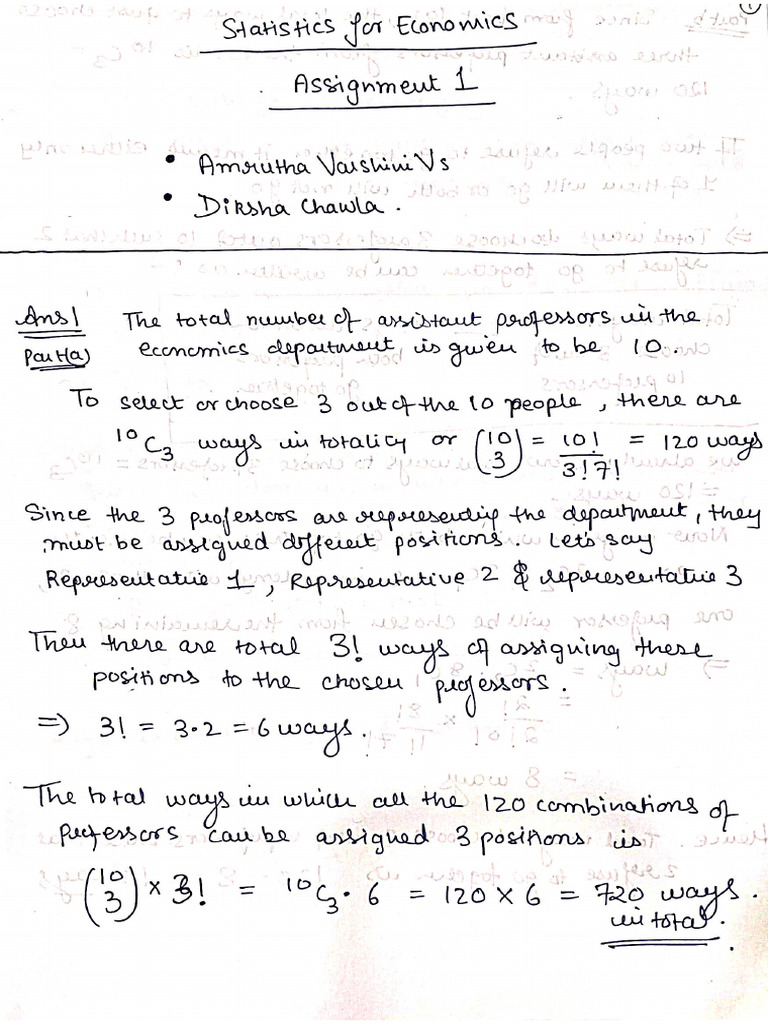 1
Statistics for Economics
Assignment 1
• Amrutha Varshini Vs
• Diksha Chawla.
Ans1 The total number of assistant professors in the
Part(a) economics department is given to be 10.
To select or choose 3 out of the 10 people, there are
¹⁰C₃ ways in totality or (10 3) = 10!/3!7! = 120 ways
Since the 3 professors are representing the department, they
must be assigned different positions. Let's say
Representative 1, Representative 2 & representative 3
Then there are total 3! ways of assigning these
positions to the chosen professors.
=> 3! = 3·2 = 6 ways.
The total ways in which all the 120 combinations of
professors can be assigned 3 positions is
(10 3) × 3! = ¹⁰C₃ · 6 = 120 × 6 = 720 ways.
in total.